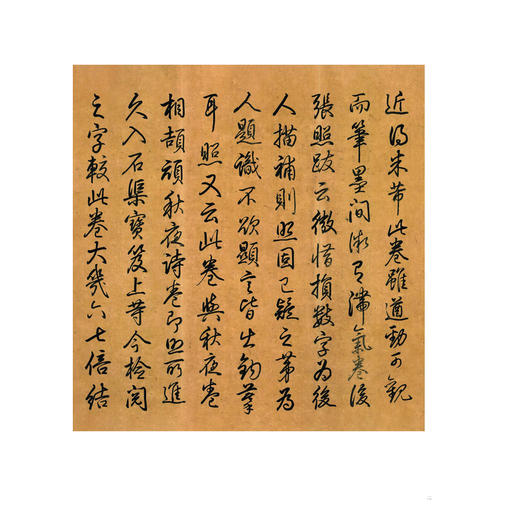 近得米芾此卷雖遒勁可觀
而筆墨間微有滯氣卷後
張照跋云微惜損數字為後
人描補則照固已疑之第為
人題識不欲顯言皆出鉤摹
耳照又云此卷與秋夜卷
相頡頏秋夜詩卷即照所進
久入石渠寶笈上等今檢閱
之字較此卷大幾六七倍結